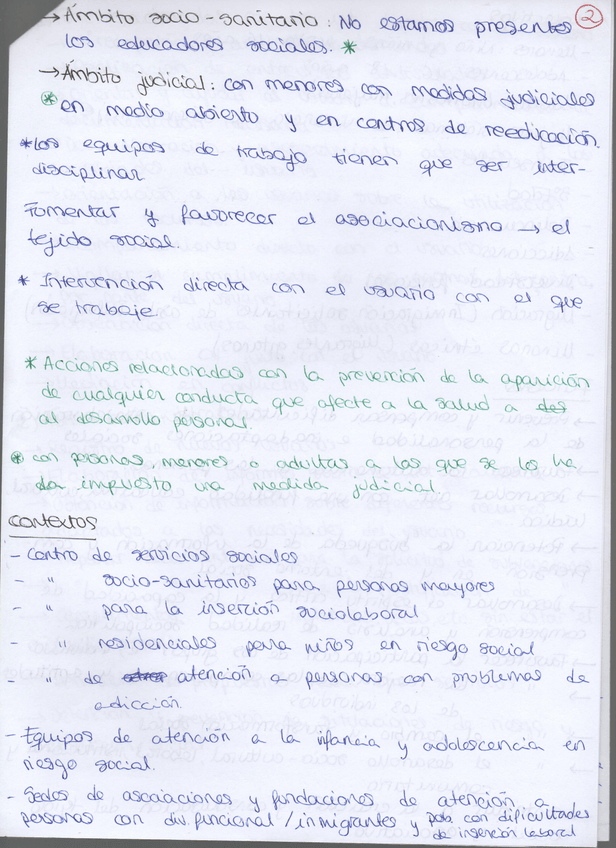 → Ámbito socio-sanitario: No estamos presentes ②
los educadores sociales. *
→ Ámbito judicial: con menores con medidas judiciales
* en medio abierto y en centros de reeducación.
* Los equipos de trabajo tienen que ser inter-
disciplinar
Fomentar y favorecer el asociacionismo → el
tejido social.
* Intervención directa con el usuario con el que
se trabaje
* Acciones relacionadas con la prevención de la aparición
de cualquier conducta que afecte a la salud a des
al desarrollo personal.
* con personas menores o adultas a los que se les ha
da impuesto una medida judicial
CONTEXTOS
- Centro de servicios sociales
- " socio-sanitarios para personas mayores
- " para la inserción sociolaboral
- " residenciales para niños en riesgo social
- " de atención a personas con problemas de
adicción.
- Equipos de atención a la infancia y adolescencia en
riesgo social.
- Sedes de asociaciones y fundaciones de atención a
personas con div. funcional / inmigrantes y pob con dificultades
de inserción laboral